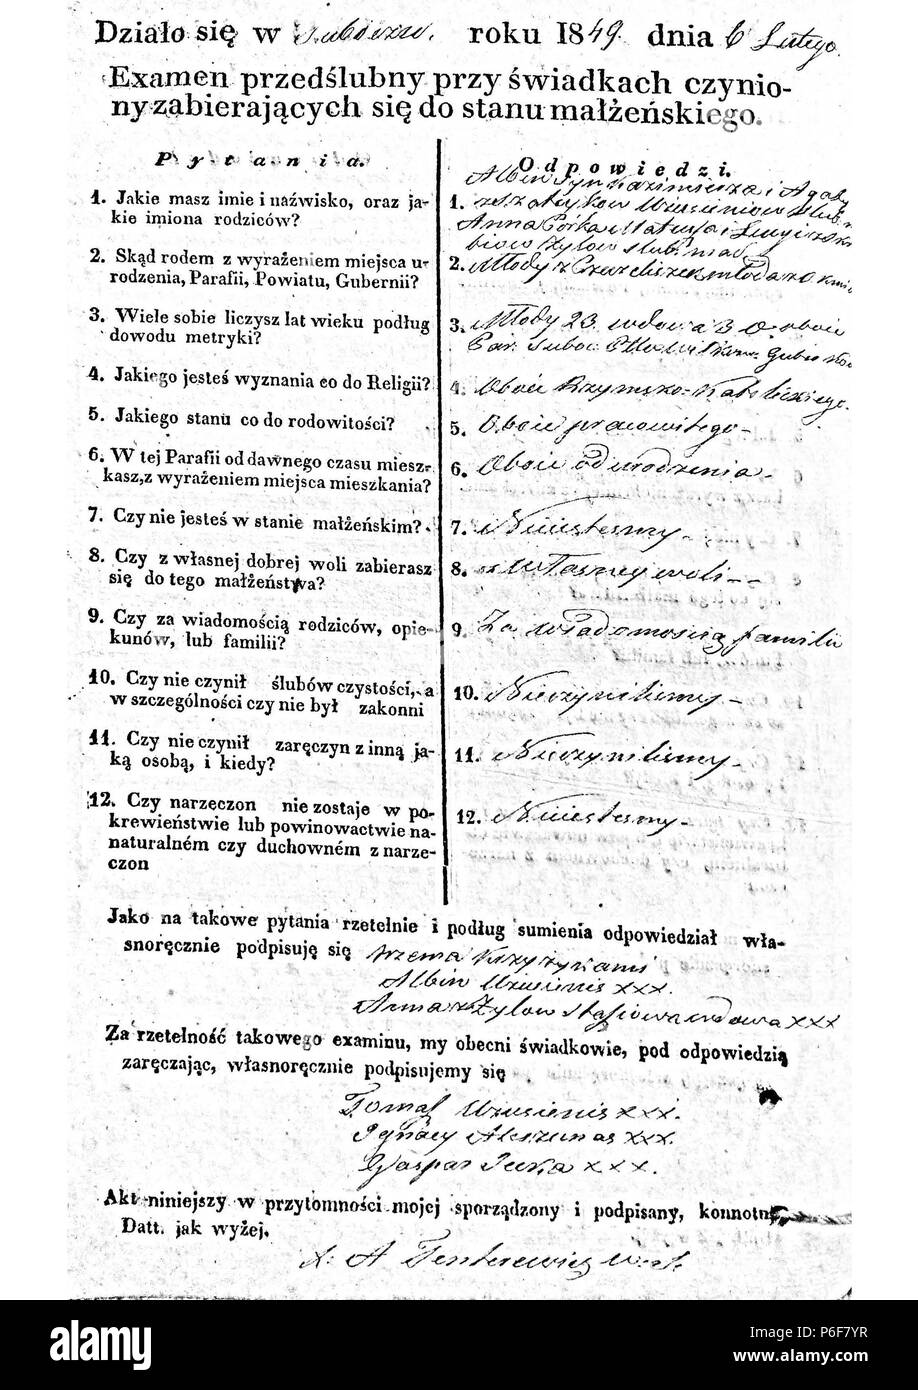 Działo się w roku 1849. dnia 6 Lutego.
Examen przedślubny przy świadkach czynio-
ny zabierających się do stanu małżeńskiego.
Pytania.
1. Jakie masz imie i naźwisko, oraz ja-
kie imiona rodziców?
2. Skąd rodem z wyrażeniem miejsca u-
rodzenia, Parafii, Powiatu, Gubernii?
3. Wiele sobie liczysz lat wieku podług
dowodu metryki?
4. Jakiego jesteś wyznania co do Religii?
5. Jakiego stanu co do rodowitości?
6. W tej Parafii od dawnego czasu miesz-
kasz, z wyrażeniem miejsca mieszkania?
7. Czy nie jesteś w stanie małżeńskim?
8. Czy z własnej dobrej woli zabierasz
się do tego małżeństwa?
9. Czy za wiadomością rodziców, opie-
kunów, lub familii?
10. Czy nie czynił ślubów czystości, a
w szczególności czy nie był zakonni
11. Czy nie czynił zaręczyn z inną ja-
ką osobą, i kiedy?
12. Czy narzeczon nie zostaje w po-
krewieństwie lub powinowactwie na-
naturalném czy duchowném z narze-
czon
Odpowiedzi.
Albin syn Kazimierza i Agaty
1.
Anna córka
2. Młody z
3. Młody 23 wdowa 30 oboie
Par.
4. Oboie Rzymsko-Katolickiego.
5. Oboie pracowitego-
6. Oboie od urodzenia-
7. Niiestesmy-
8. z własney woli--
9. Za wiadomością familii
10. Nieczyniliśmy-
11. Nieczyniliśmy-
12. Niiestesmy-
Jako na takowe pytania rzetelnie i podług sumienia odpowiedział wła-
snoręcznie podpisuję się trzema krzyżykami
Albin xxx.
Anna z Żylow wdowa xxx
Za rzetelność takowego examinu, my obecni świadkowie, pod odpowiedzią
zaręczając, własnoręcznie podpisujemy się
Tomasz xxx.
Ignacy xxx.
Gaspar xxx.
Akt niniejszy w przytomności mojej sporządzony i podpisany, konnotuję
Datt. jak wyżej.
X. A
alamy
Image ID: P6F7YR
www.alamy.com